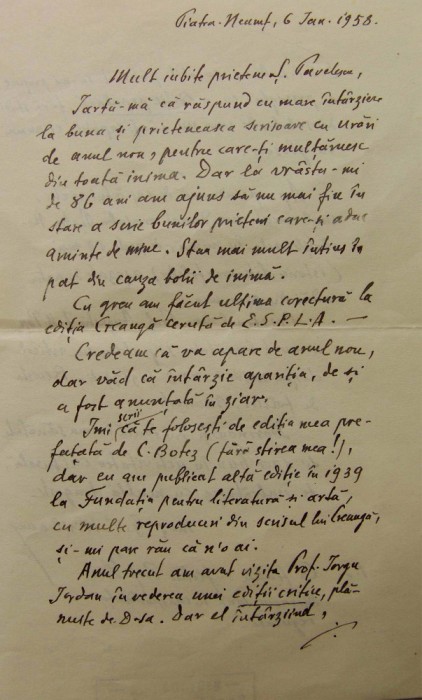 Piatra-Neamț, 6 Ian. 1958.
Mult iubite prietene Ș. Pavelescu,
Iartă-mă că răspund cu mare întârziere
la buna și prieteneasca scrisoare cu urări
de anul nou, pentru care-ți mulțumesc
din toată inima. Dar la vrâsta-mi
de 86 ani am ajuns să nu mai fiu în
stare a scrie bunilor prieteni care-și aduc
aminte de mine. Stau mai mult întins în
pat din cauza bolii de inimă.
Cu greu am făcut ultima corectură la
ediția Creangă cerută de E.S.P.L.A. —
Credeam că va apare de anul nou,
dar văd că întârzie apariția, de și
a fost anunțată în ziar.
Îmi scrii că te folosești de ediția mea pre-
fațată de C. Botez (fără știrea mea!),
dar eu am publicat altă ediție în 1939
la Fundația pentru literatură și artă,
cu multe reproduceri din scrisul lui Creangă,
și-mi pare rău că n'o ai.
Anul trecut am avut vizita Prof. Iorgu
Iordan în vederea unei ediții critice, plă-
nuite de D-sa. Dar el întârziind,